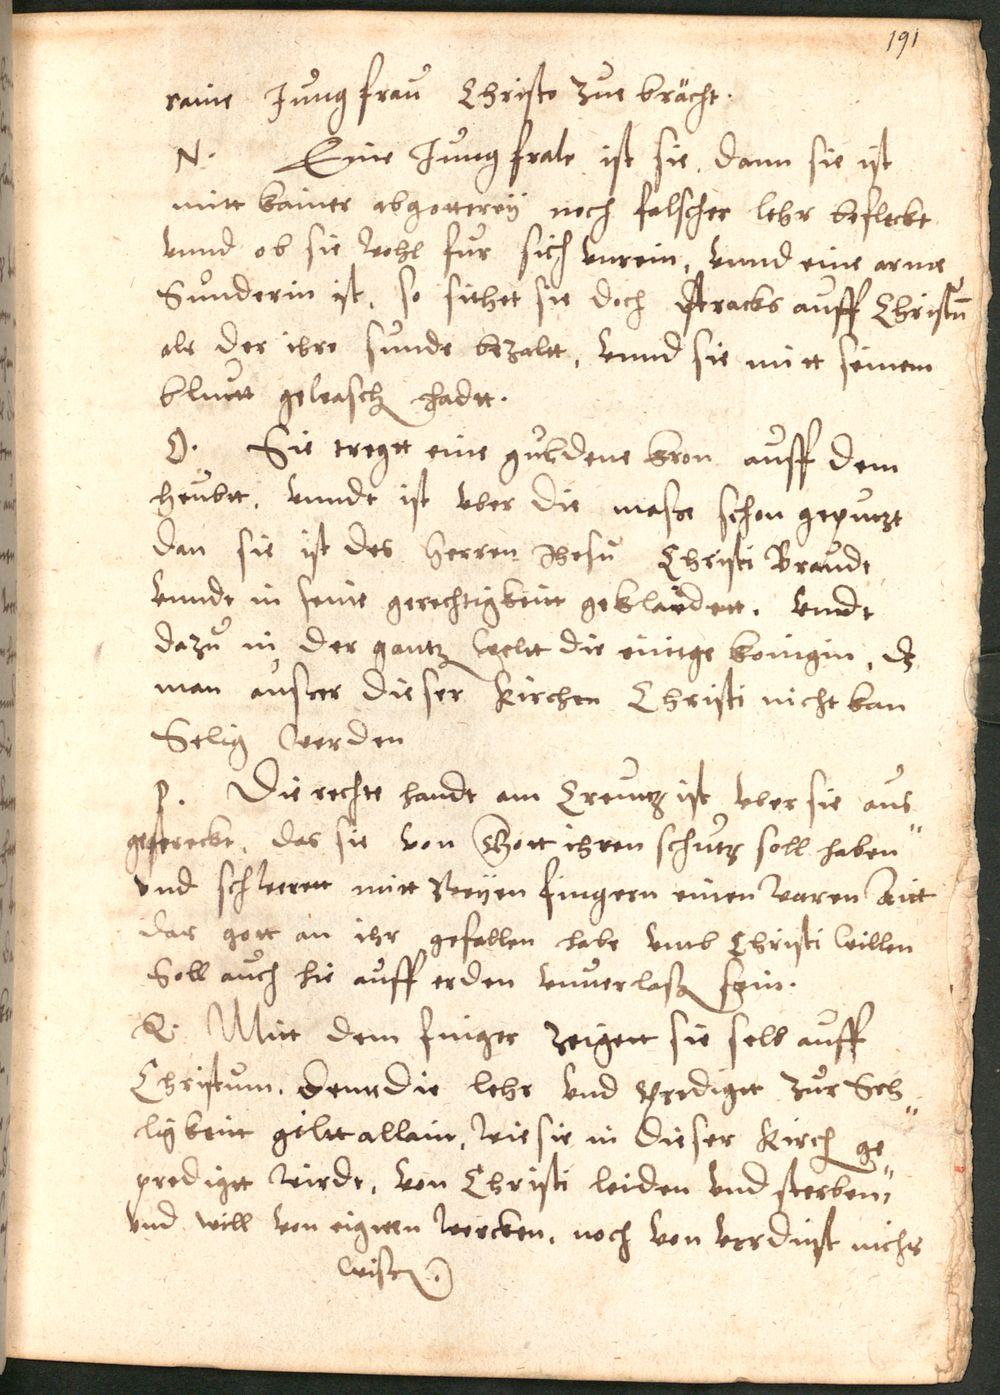 191
raine Jungfrau Christo zue brächt.
N. Eine Jungfraw ist sie, dann sie ist
mitt kainer abgotterey noch falscher lehr befleckt
vnnd ob sie wohl fur sich vnrein, vnnd eine arme
Sunderin ist, so sihet sie doch stracks auff Christum̅
als der ihre sunde bezaltt, vnnd sie mitt seinem
bluett gewasch hadtt.
O. Sie tregtt eine guldene kron auff dem
heubtt, vnndt ist vber die massē schon geputzt
dan sie ist des herren Jhesu Christi Braudt
vnndt in seine gerechtigkeitt geklaidett, vnndt
dazu in der gantz weltt die einige konigin, dz
man ausser dieser Kirchen Christi nicht kan
Selig werden
P. Die rechte handt am Creutz ist vber sie aus
gestreckt, das sie von Gott ihren schutz soll haben
vnd schweret mitt zweyen fingern einen waren Aitt
das gott an ihr gefallen habe vmb Christi willen
Soll auch hie auff erden vnverlaß sein.
Q. Mitt dem finger zeigett sie selb auff
Christum, denn die lehr vnd Predigtt zur Seh
ligkeitt giltt allain, wie sie in dieser Kirch ge
predigtt wirdt, von Christi leiden vnd sterben,
vnd will von eignen wercken, noch von verdinst nichts
wissē.